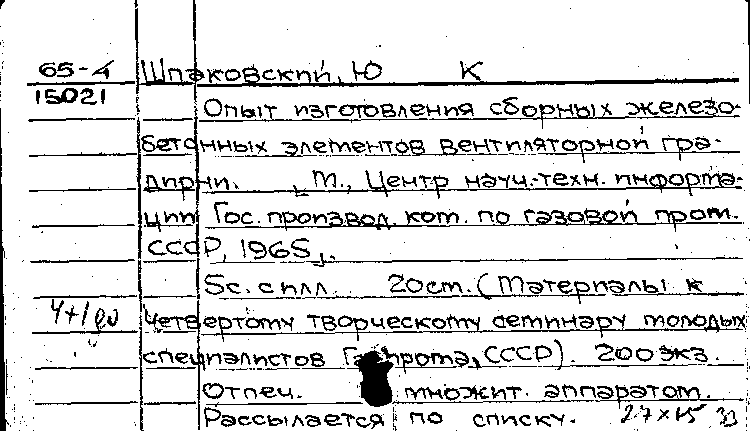 65-4 Шпаковский, Ю К
15021
Опыт изготовления сборных железо-
бетонных элементов вентиляторной гра-
дирни. [М., Центр науч.-техн. информа-
ции Гос. производ. ком. по газовой пром.
СССР, 1965].
5с. с илл. 20см. (Материалы к
4+1
четвертому творческому семинару молодых
специалистов Газпрома, СССР). 200экз.
Отпеч. множит. аппаратом.
Рассылается по списку. 27×15